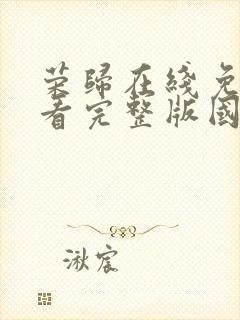 荣歸在綫免
看完整版國
湫宸